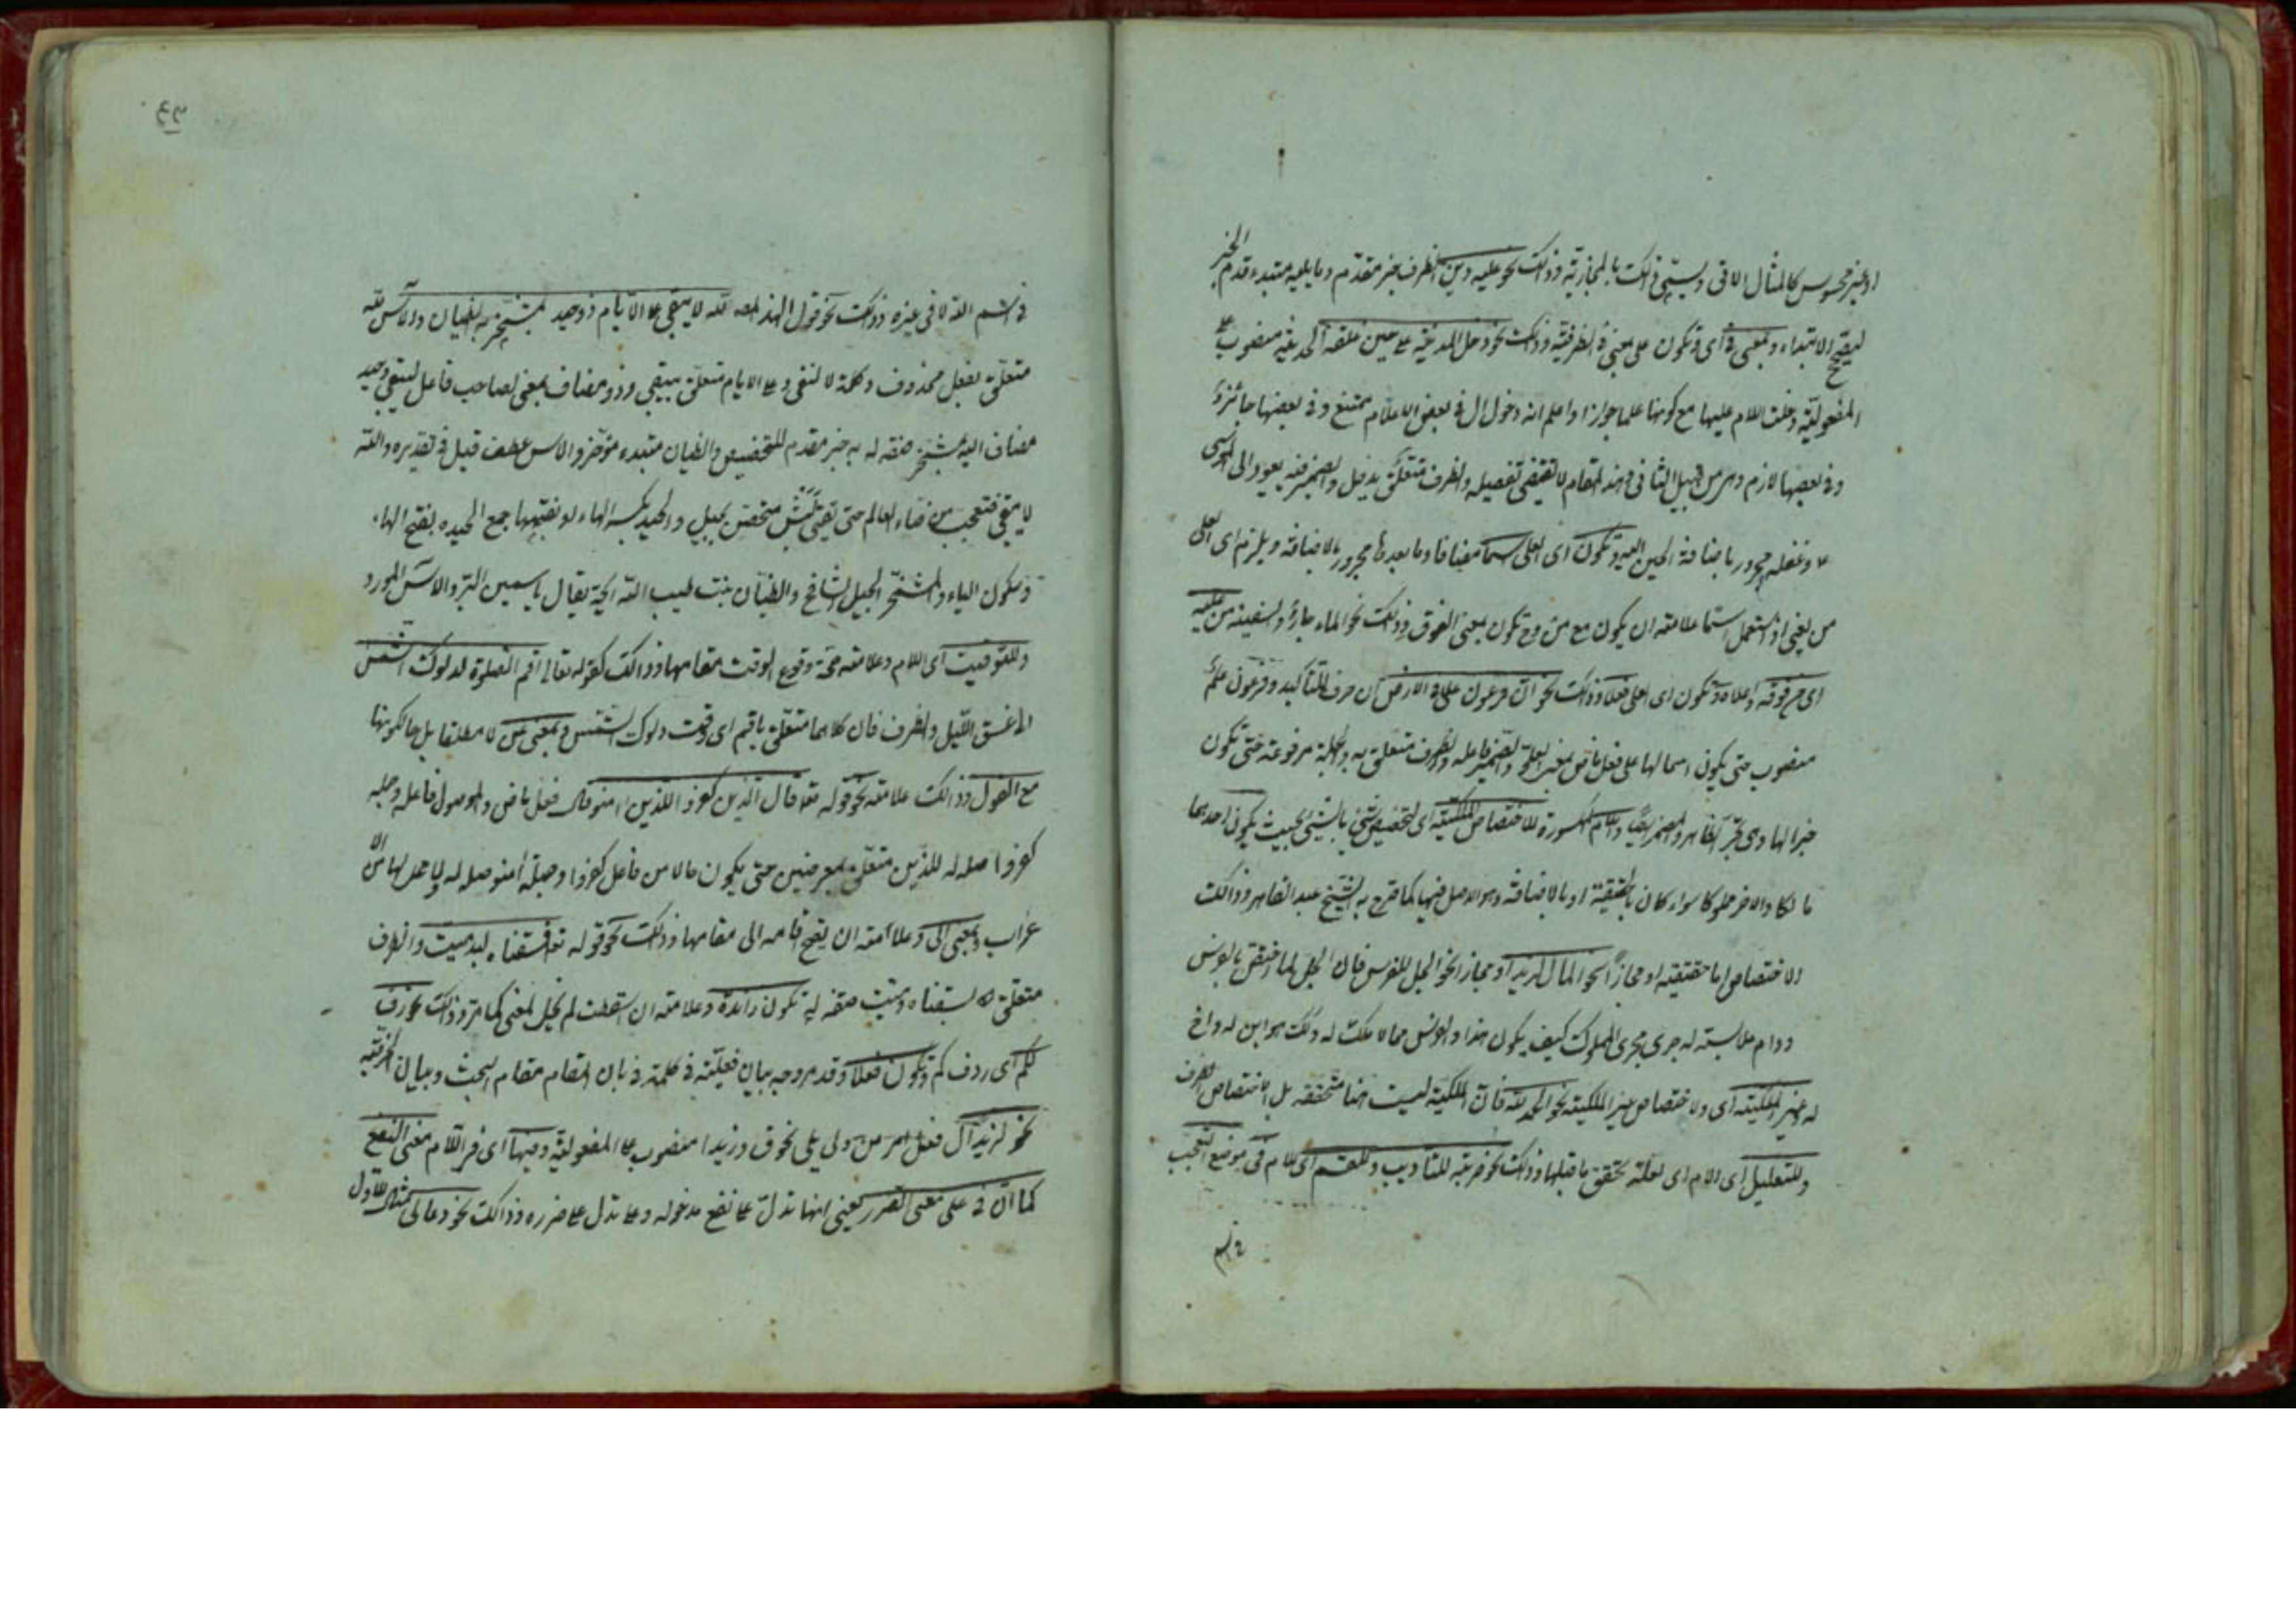 او غير محسوس كالمثال الاتى ويسمى ذلك بالمجازية وذلك نحو عليه دين الظرف خبر مقدم وما يليه مبتدء قدم الخبر
ليصح الابتداء وبمعنى فى اى وتكون على بمعنى فى الظرفية وذلك نحو دخل المدينة على حين غفلة المدينة منصوب على
المفعولية دخلت اللام عليها مع كونها علما جوازا واعلم ان دخول ال فى بعض الاعلام ممتنع وفى بعضها جائزة
وفى بعضها لازم وهى من قبيل الثانى وهذا المقام لا تقتضى تفصيله والظرف متعلق بدخل والضمير فيه يعود الى موسى
وغفلة مجرور باضافة الحين اليه وتكون اى على اسما مضافا وما بعدها مجرور بالاضافة ويلزم اى على
من يعنى اذا استعمل اسما علامته ان يكون مع من وح تكون بمعنى الفوق وذلك نحو الماء جار والسفينة من عليه
اى من فوقه واعلاه وتكون اى على فعلا وذلك نحو ان فرعون علا فى الارض ان حرف للتأكيد وفرعون علم
منصوب حتى يكون اسما لها على فعل ماض بمعنى العلو والضمير فاعله والظرف متعلق به والجملة مرفوعة حتى تكون
خبرا لها وهى تجر الظاهر والمضمر ايضا واللام المكسورة للاختصاص الملكية اى لتخصيص شئ بالشئ بحيث يكون احدهما
مالكا والاخر مملوكا سواء كان بالحقيقة او بالاضافة وهو الاصل فيها كما صرح به الشيخ عبد القاهر وذلك
الاختصاص اما حقيقة او مجازا نحو المال لزيد او مجاز نحو الجل للفرس فان الجل لما اختص بالفرس
ودام ملابسته له جرى مجرى المملوك كيف يكون هذا والفرس مما لا ملك له وذلك هو ابن له واخ
له وغير الملكية اى ولاختصاص غير الملكية نحو الحمد لله فان الملكية ليست هنا متحققة بل الاختصاص الظرف
وللتعليل اى اللام اى لعلة تحقق ما قبلها وذلك نحو ضربته للتأديب وللقسم اى اللام فى موضع التعجب
فى اسم الله لا فى غيره وذلك نحو قول الهذلى لله لا يبقى على الايام ذو حيد بمشمخر به الظيان والآس لله
متعلق بفعل محذوف وكلمة لا لنفى وعلى الايام متعلق بيبقى وذو مضاف بمعنى صاحب فاعل ليبقى وحيد
مضاف اليه بمشمخر صفة له به خبر مقدم للتخصيص والظيان مبتدء مؤخر والآس عطف قيل فى تقديره والله
لا يبقى فتعجب من فناء العالم حتى متحصن بجبيل والحيد بكسر الهاء او بفتحها جمع الحيدة بفتح الهاء
وسكون الياء والمشمخر الجبل الشامخ والظيان نبت طيب الرائحة يقال ياسمين البر والآس المورد
وللتوقيت اى اللام وعلامته صحة وقوع الوقت مقامها وذلك كقوله تعالى اقم الصلوة لدلوك الشمس
الى غسق الليل والظرف فان كلاهما متعلق باقم اى وقت دلوك الشمس وبمعنى عن لا مطلقا بل حالكونها
مع القول وذلك علامته نحو قوله تعالى قال الذين كفروا للذين امنوا قال فعل ماض والموصول فاعله وجملة
كفروا صلة له للذين متعلق بمعرضين حتى يكون حالا من فاعل كفروا وجملة امنوا صلة له ولا محل لها من الا
عراب وبمعنى الى وعلامته ان يصح اقامة الى مقامها وذلك نحو قوله تعالى فسقناه لبلد ميت والظرف
متعلق لسقناه وميت صفة له تكون زائدة وعلامته ان اسقطت لم يخل المعنى كما مر وذلك نحو ردف
لكم اى ردفكم وتكون فعلا وقد مر وجه بيان فعليته فى كلمة فى بان المقام مقام البحث وبيان الحرفية
نحو لزيدا ل فعل امر من ولى يلى نحو ق وزيدا منصوب على المفعولية وفيها اى فى اللام معنى النفع
كما ان فى على معنى الضرر يعنى انها تدل على نفع مدخوله وعلى تدل على ضرره وذلك نحو دعا لى مثال الاول